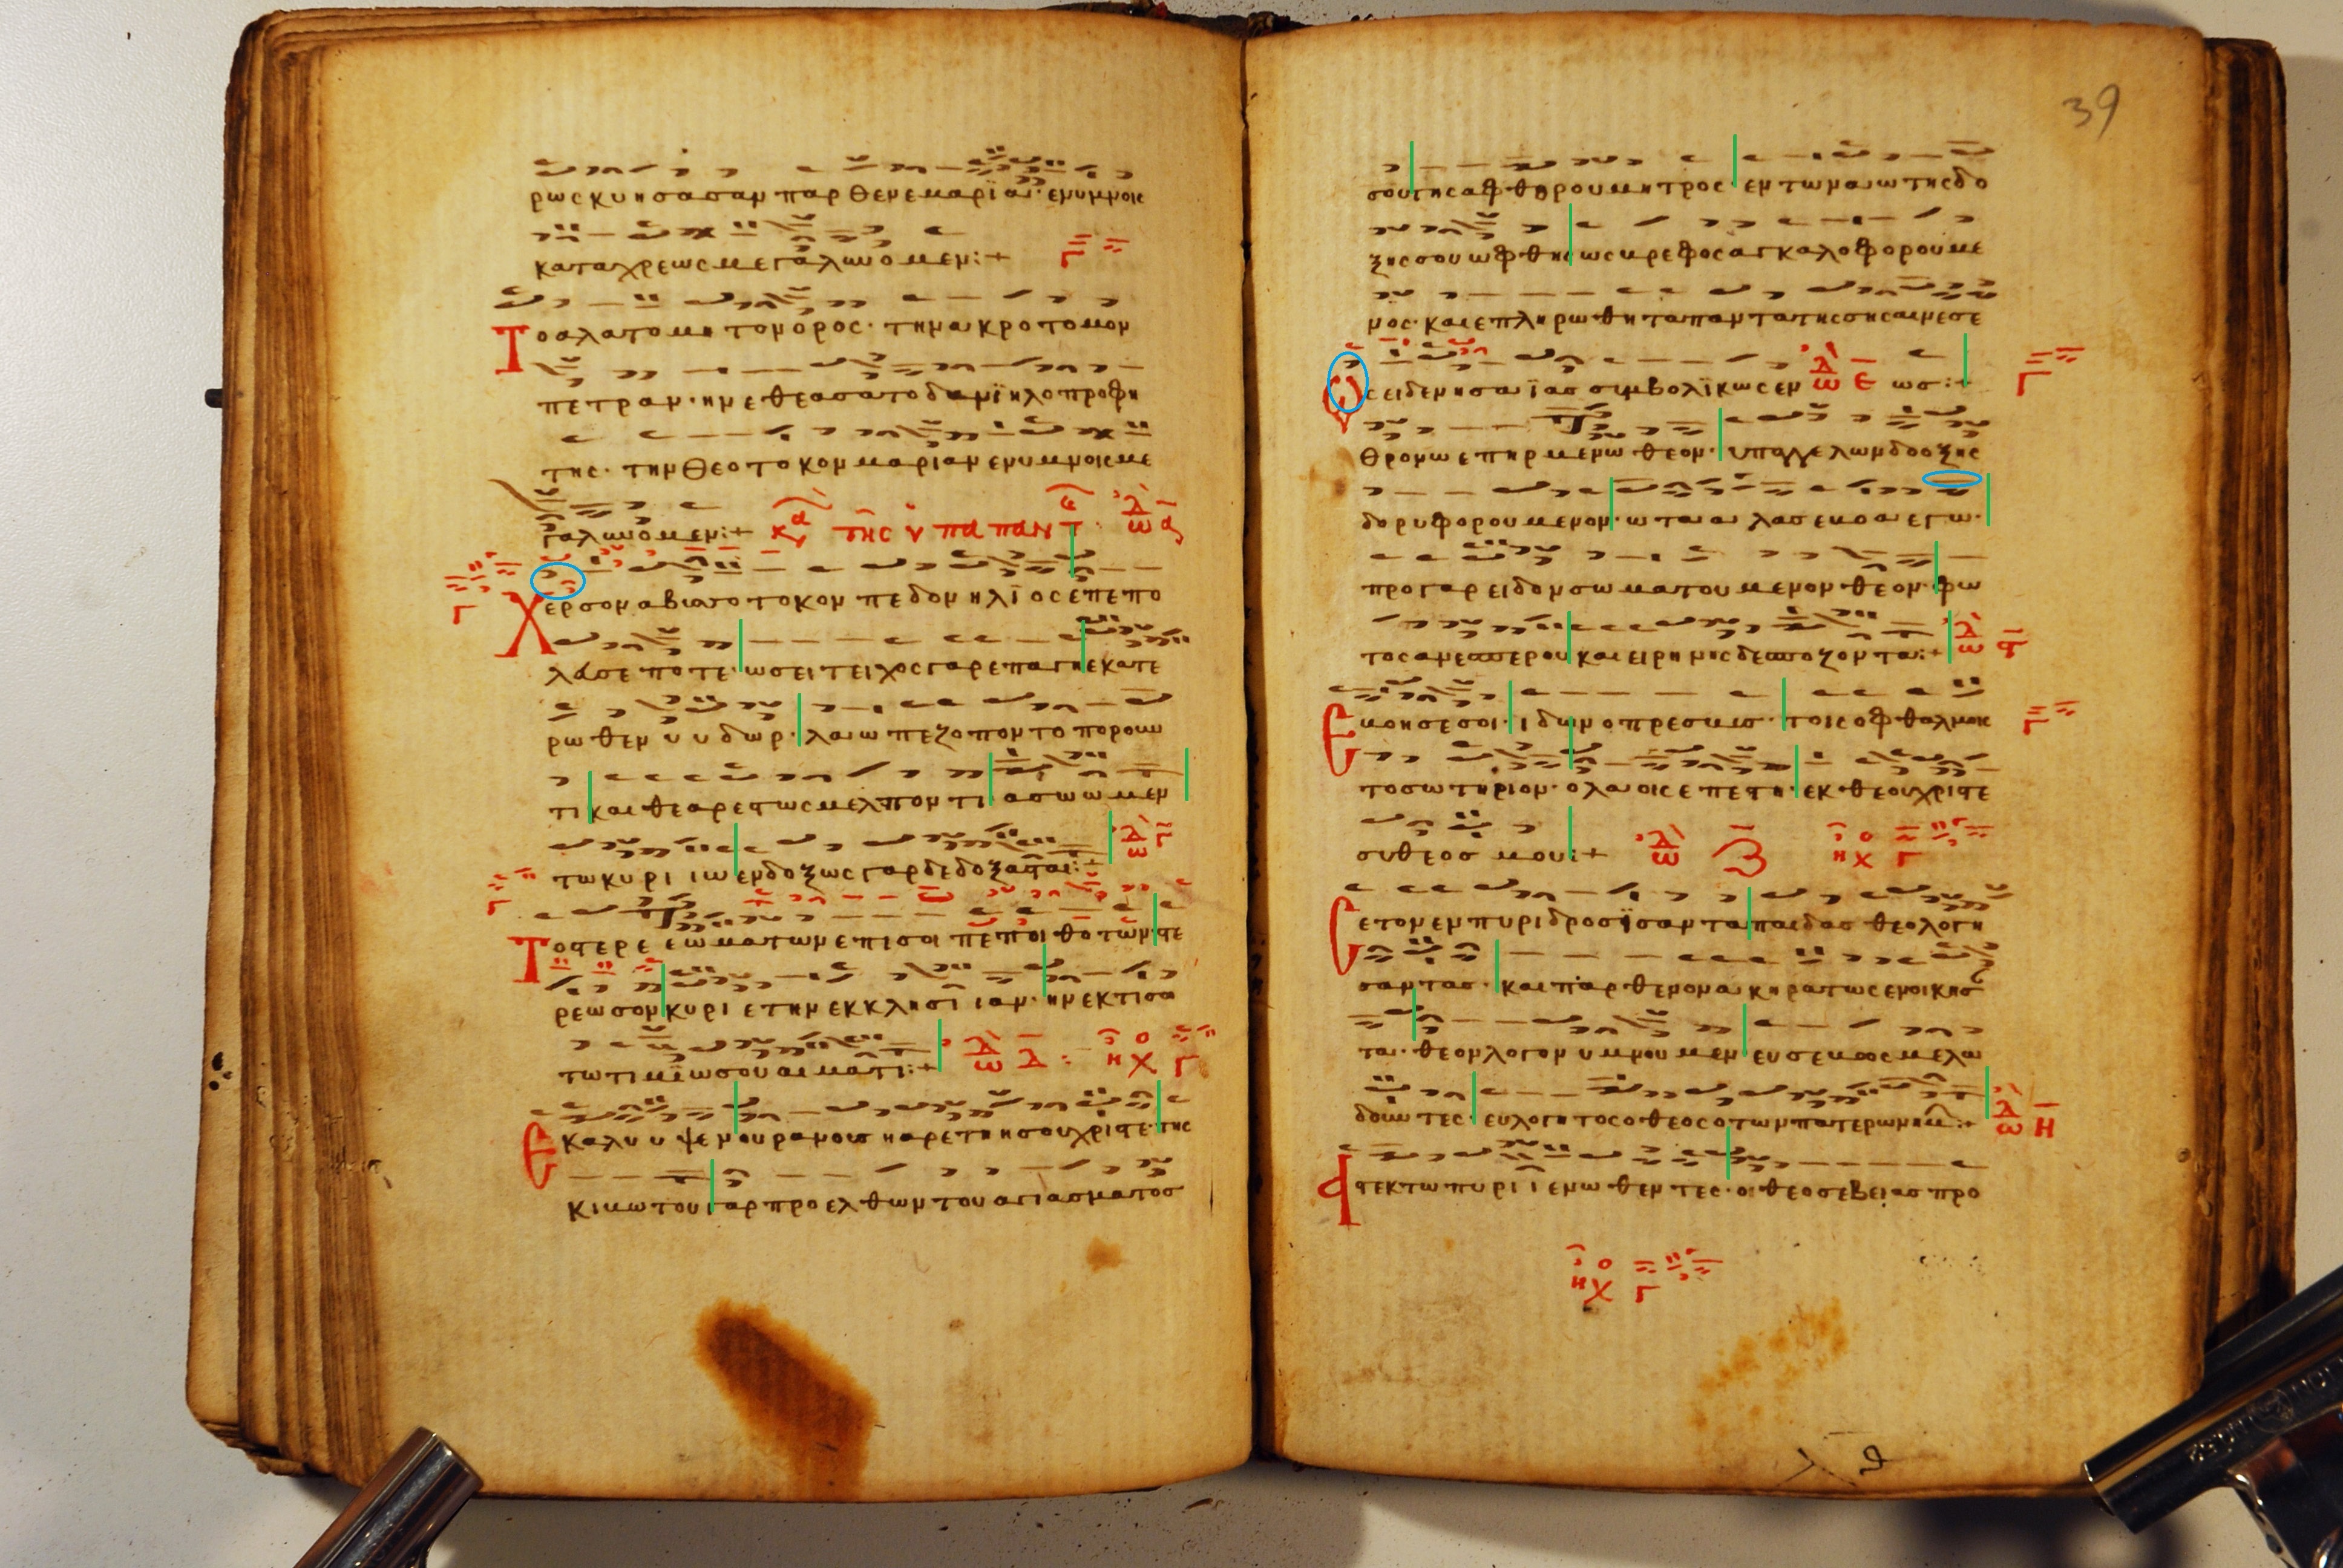 ρως κυησασαν παρθενε μαριαν· εν υμνοις
καταχρεως μεγαλυνομεν:+ Γ
Το αλατομητον ορος· την ακροτομον
πετραν· ην εθεασατο δανιηλ ο προφη
της· την Θεοτοκον μαριαν εν υμνοις με
γαλυνομεν:+ κα της υπαπαντ ωδ α
Γ Χερσον αβυσσοτοκον πεδον ηλιος επεπο
λασε ποτε ωσει τειχος γαρ επαγη εκατε
ρωθεν υυδωρ· λαω πεζοποντοπορουν
τι και θεαρεστως μελποντι ασωωμεν
τω κυριιω ενδοξως γαρ δεδοξασται:+ ωδ Γ
Γ
Το στερεεωμα των επι σοι πεποιθοτων· στε
ρεωσον κυριε την εκκλησιιαν· ην εκτισω
τω τιμιω σου αιματι:+ ωδ Δ: ηχο Γ
Εκαλυυψεν ουρανους η αρετη σου χριστε της
κιβωτου γαρ προελθων του αγιασματος
39
σου της αφθορου μητρος· εν τω ναω της δο
ξης σου ωφθης ως βρεφος αγκαλοφορουμε
νος· και επληρωθη τα παντα της σης αινεσε
ως:+ Γ
Ως ειδεν ησαιας συμβολικως εν ωδ ε
θρονω επηρμενω θεον· υπ αγγελων δοοξης
δορυφορουμενον· ω ταλας εβοα εγω·
προ γαρ ειδον σωματουμενον θεον· φω
τος ανεσπερου και ειρηνης δεσποζοντα:+ ωδ ϛ
Εβοησε σοι· ιδων ο πρεσβυς· τοις οφθαλμοις Γ
το σωτηριον· ο λαοις επεστη· εκ θεου χριστε
συ θεος μου:+ ωδ ζ ηχο Γ
Σε τον εν πυρι δροσισαντα παιδας θεολογη
σαντας· και παρθενον ακηρατως ενοικησ
τα· θεον λογον υμνουμεν ευσεβως μελω
δουντες· ευλογητος ο θεος ο των πατερων ημ:+ ωδ Η
Αστεκτω πυριι ενωθεντες· οι θεοσεβειας προ
ηχο Γ